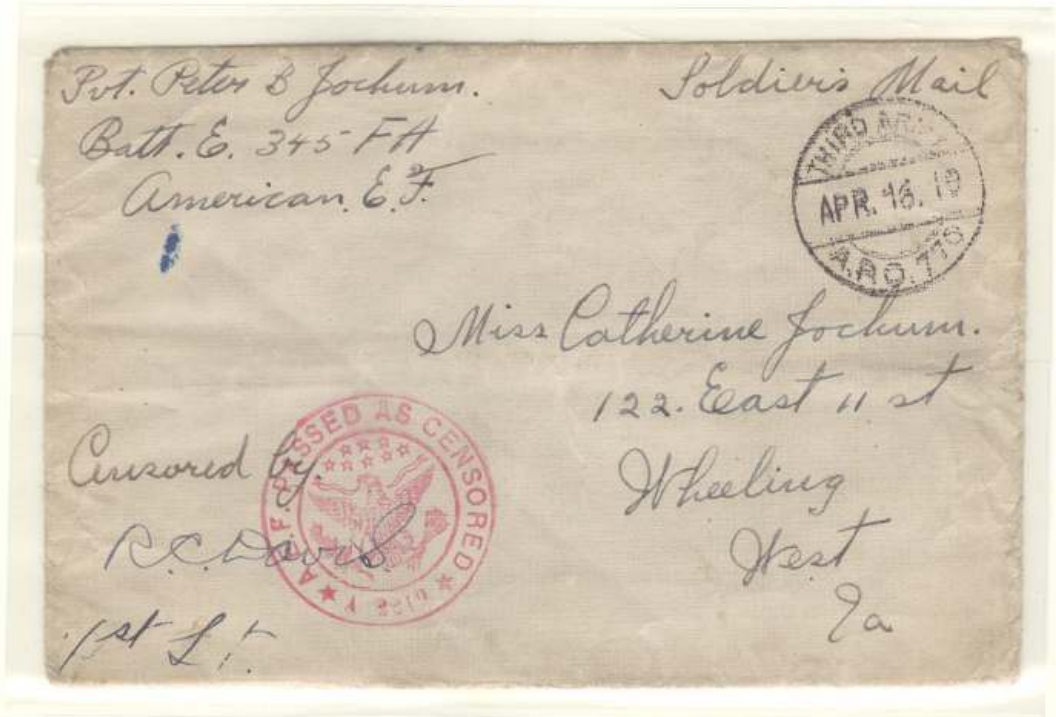 Pvt. Peter B Jochum.
Batt. E. 345 FA
American. E. F.
Soldier's Mail
THIRD ARMY
APR. 16. 19
A.P.O. 770
Miss Catherine Jochum.
122. East 11 st
Wheeling
West
Va
Censored by.
R.C. Davis
1st Lt.
A.E.F. PASSED AS CENSORED